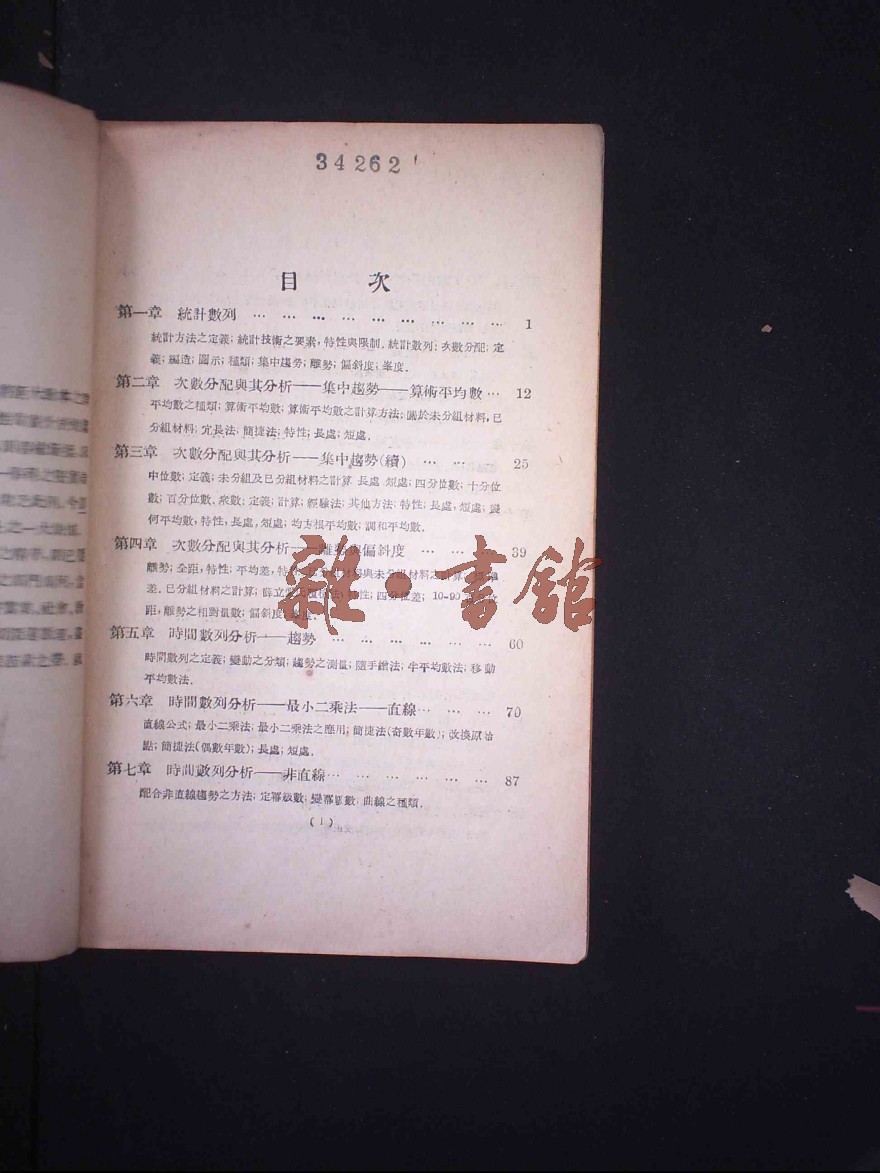 34262
目 次
第一章 統計數列 … … … … … … … … … 1
統計方法之定義; 統計技術之要素, 特性與限制. 統計數列: 次數分配; 定
義; 編造; 圖示; 種類; 集中趨勢; 離勢; 偏斜度; 峯度.
第二章 次數分配與其分析——集中趨勢——算術平均數… 12
平均數之種類; 算術平均數; 算術平均數之計算方法; 關於未分組材料, 已
分組材料; 冗長法; 簡捷法; 特性; 長處; 短處.
第三章 次數分配與其分析——集中趨勢(續) … … … 25
中位數; 定義; 未分組及已分組材料之計算 長處 短處; 四分位數; 十分位
數; 百分位數. 衆數; 定義; 計算; 經驗法; 其他方法; 特性; 長處, 短處; 幾
何平均數, 特性, 長處, 短處; 均方根平均數; 調和平均數.
第四章 次數分配與其分析——離勢與偏斜度 … … … 39
離勢; 全距, 特性; 平均差, 特 材料與未分組材料之計算
差. 已分組材料之計算; 特性; 四分位差; 10-90
距, 離勢之相對量數; 偏斜度; 峯度.
第五章 時間數列分析——趨勢 … … … … … … 60
時間數列之定義; 變動之分類; 趨勢之測量; 隨手繪法; 半平均數法; 移動
平均數法.
第六章 時間數列分析——最小二乘法——直線… … … 70
直線公式; 最小二乘法; 最小二乘法之應用; 簡捷法(奇數年數); 改換原始
點; 簡捷法(偶數年數); 長處; 短處.
第七章 時間數列分析——非直線… … … … … … 87
配合非直線趨勢之方法; 定冪級數; 變冪 數; 曲線之種類.
(1)
雜·書館